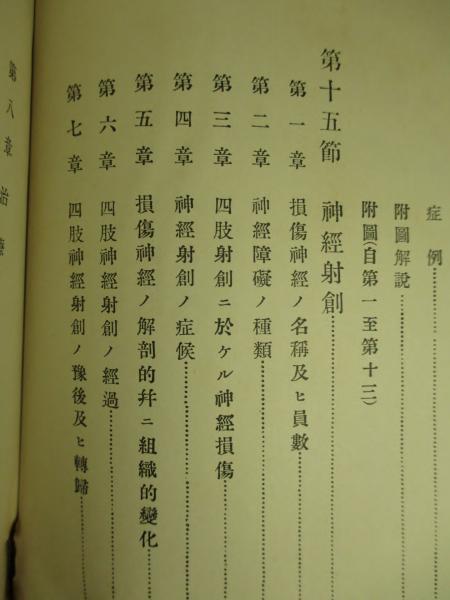 症例
附圖解說
附圖(自第一至第十三)
第十五節 神經射創
第一章 損傷神經ノ名稱及ヒ員數
第二章 神經障礙ノ種類
第三章 四肢射創ニ於ケル神經損傷
第四章 神經射創ノ症候
第五章 損傷神經ノ解剖的幷ニ組織的變化
第六章 四肢神經射創ノ經過
第七章 四肢神經射創ノ豫後及ヒ轉歸
第八章 治療